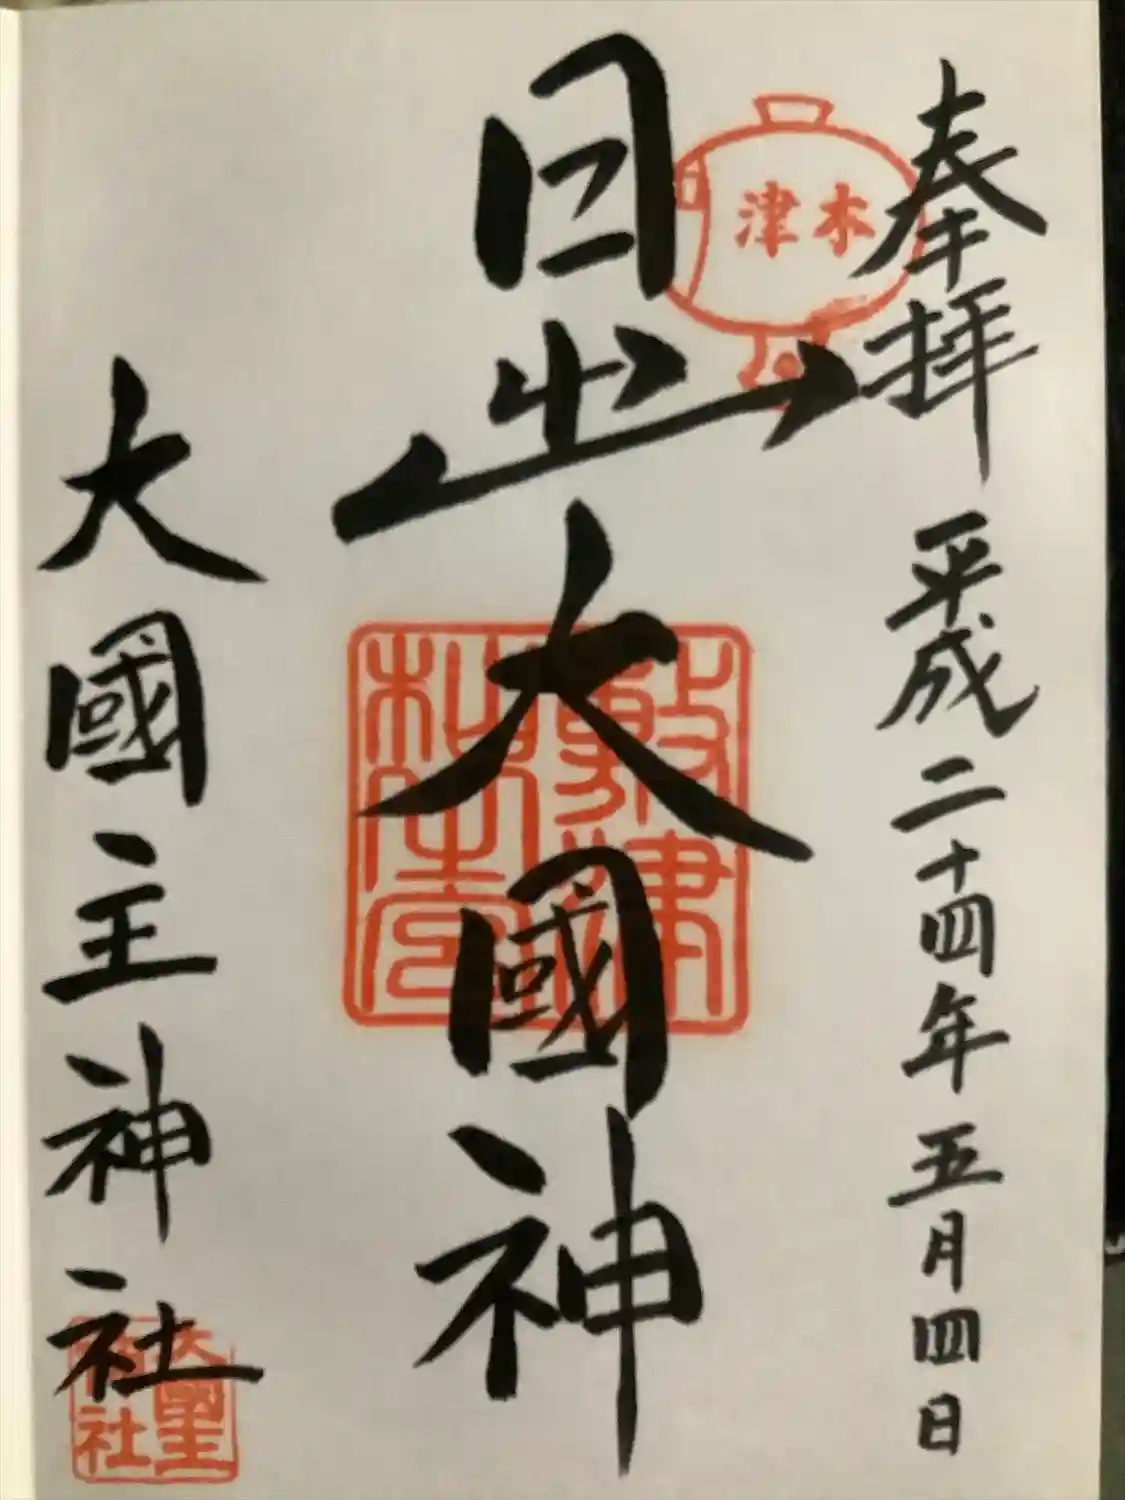 奉拝 平成二十四年五月四日
木津
日出大國神
敷津松之宮
大國主神社
大國主神社